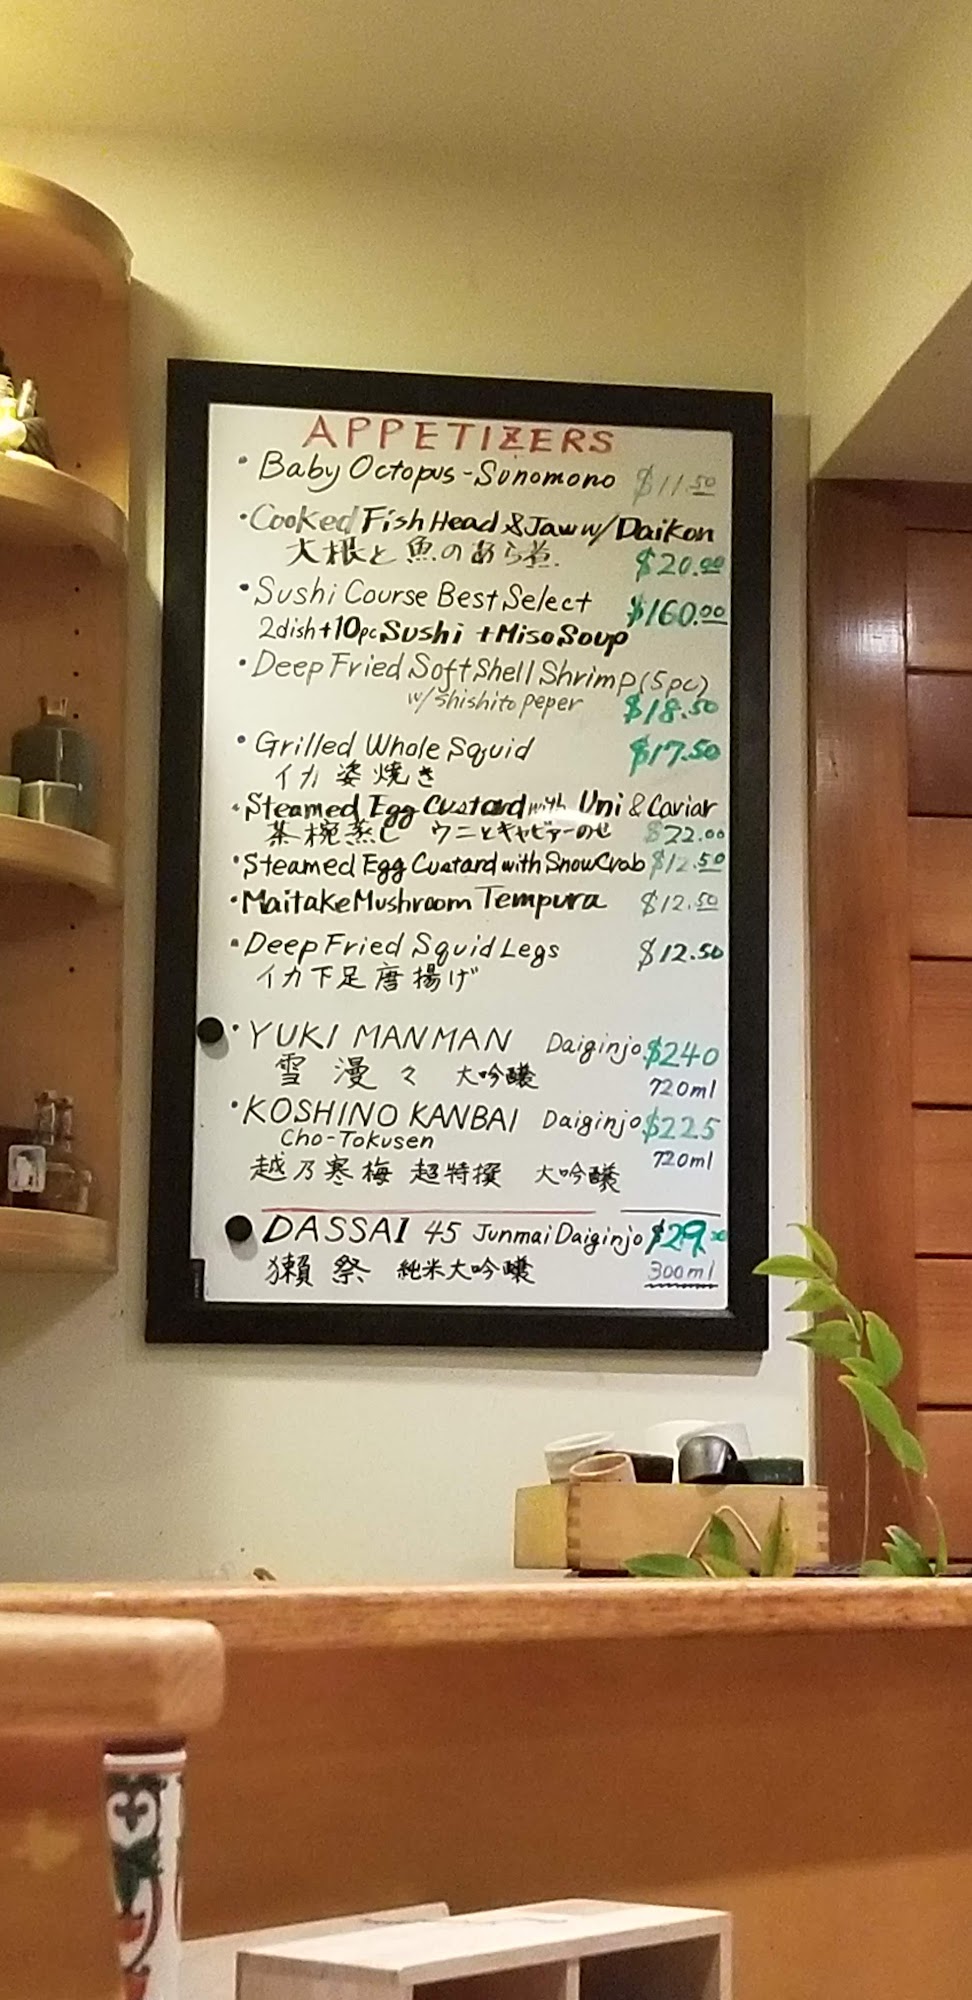 APPETIZERS
• Baby Octopus - Sunomono $11.50
• Cooked Fish Head & Jaw w/ Daikon
大根と魚のあら煮 $20.00
• Sushi Course Best Select $160.00
2dish+10pc Sushi + Miso Soup
• Deep Fried Soft Shell Shrimp (5pc)
w/ shishito peper $18.50
• Grilled Whole Squid $17.50
イカ 姿焼き
• Steamed Egg Custard with Uni & Caviar
茶椀蒸し ウニとキャビアーのせ $22.00
• Steamed Egg Custard with Snow Crab $12.50
• Maitake Mushroom Tempura $12.50
• Deep Fried Squid Legs $12.50
イカ下足唐揚げ
• YUKI MANMAN Daiginjo $240
雪漫々 大吟醸 720ml
• KOSHINO KANBAI Daiginjo $225
Cho-Tokusen
越乃寒梅 超特撰 大吟醸 720ml
DASSAI 45 Junmai Daiginjo $29.50
獺祭 純米大吟醸 300ml